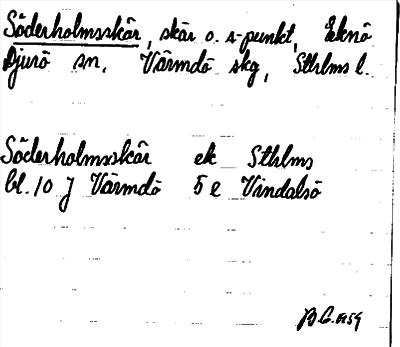 Söderholmsskär, skär o. s-punkt, Eknö
Djurö sn, Värmdö skg, Sthlms l.
Söderholmsskär ek Sthlms
bl. 10 J Värmdö 5 e Vindalsö
B G. 1959